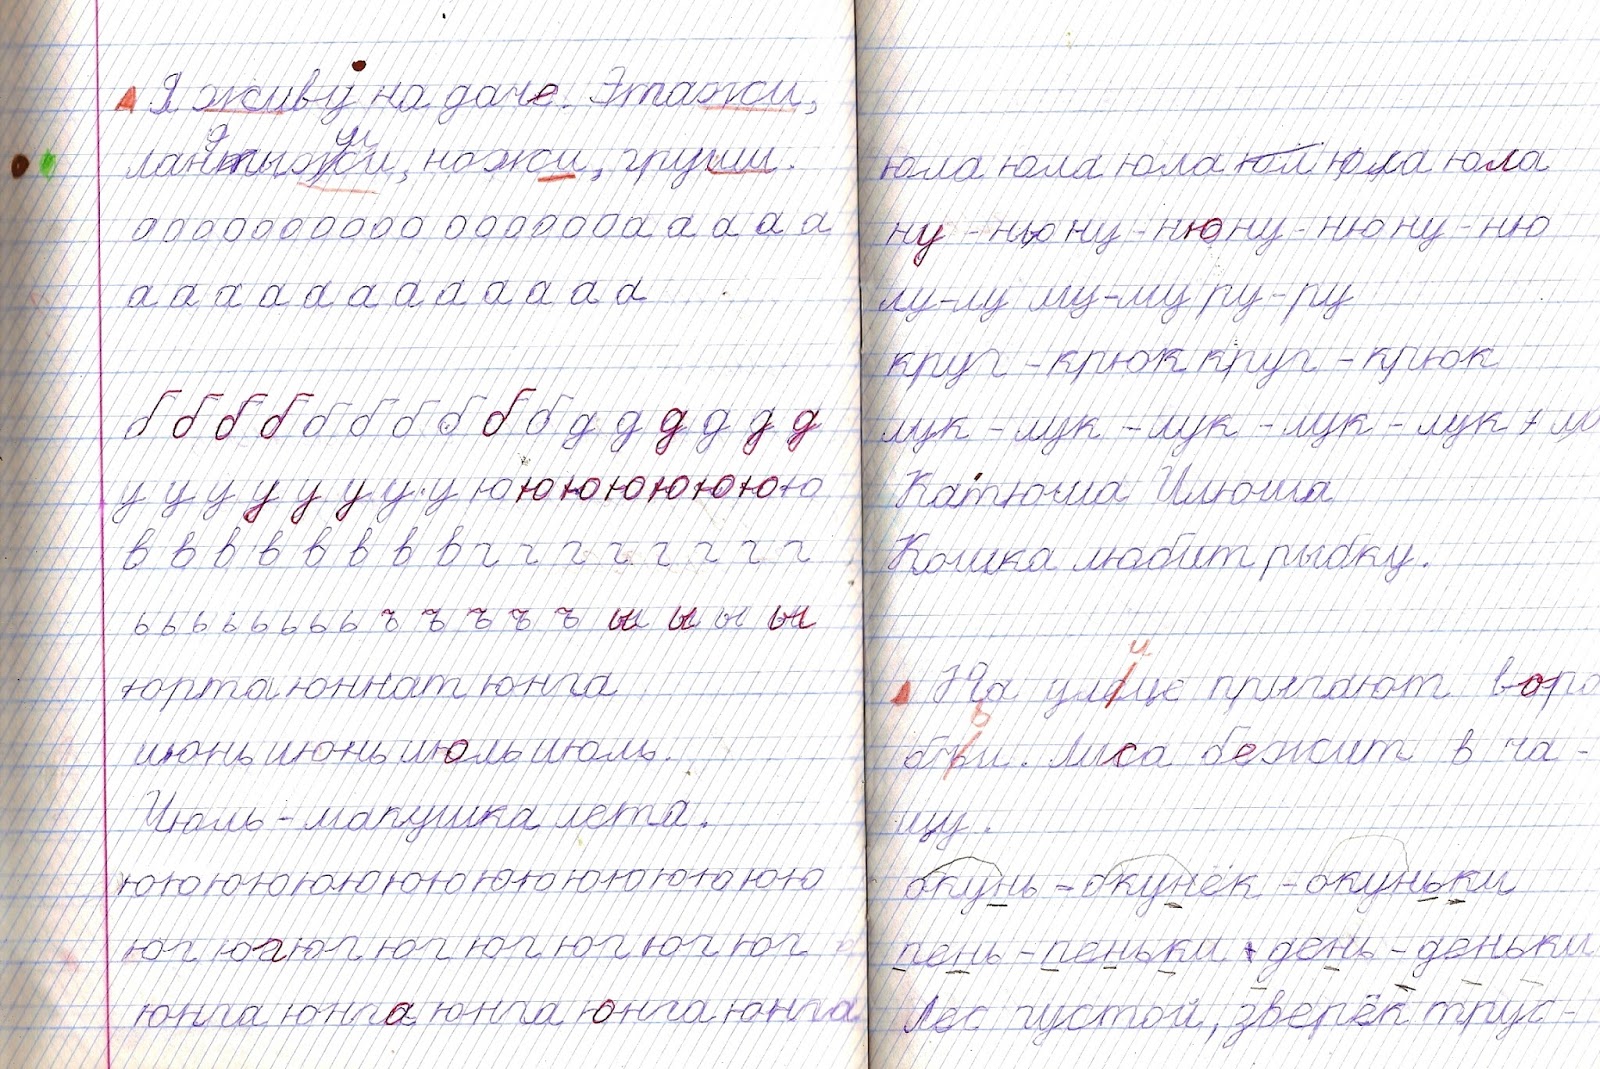 Я живу на даче. Этажи,
ландыши, ножи, груши.
о о о о о о о о о о о о о о о о о а а а а а
а а а а а а а а а а а а
б б б б б б б б б б д д д д д д
у у у у у у у у ю ю ю ю ю ю ю ю
в в в в в в в в г г г г г г г г
ь ь ь ь ь ь ь ь ъ ъ ъ ъ ъ ы ы ы ы
юрта юннат юнга
июнь июнь июль июль.
Июль - макушка лета.
ю ю ю ю ю ю ю ю ю ю ю ю ю ю ю ю
юг юг юг юг юг юг юг юг
юнга юнга юнга юнга юнга
юла юла юла юл юла юла
ну - ню ну - ню ну - ню ну - ню
лу-лу му-му ру-ру
круг - крюк круг - крюк
лук - лук - лук - лук - лук
Катюша Илюша
Кошка любит рыбку.
На улице прыгают воро
бьи. Лиса бежит в ча-
щу.
окунь - окунёк - окуньки
пень - пеньки день - деньки
Лес густой, зверёк трус-